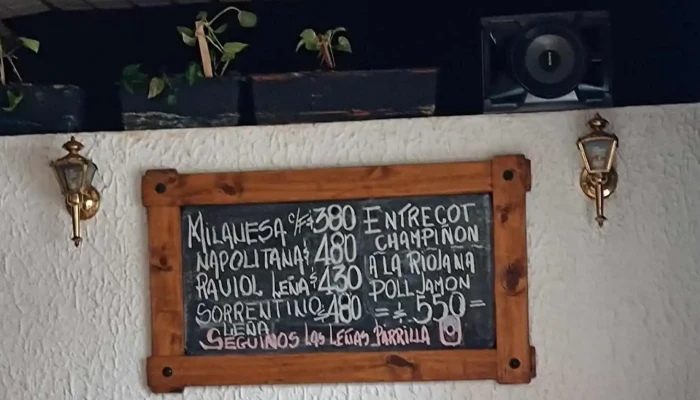 MILANESA C/F $380
NAPOLITANA $480
RAVIOL LEÑA $430
SORRENTINO $480
LEÑA
ENTRECOT
CHAMPIÑON
A LA RIOJANA
POLL JAMON
= $ 550 =
SEGUINOS LAS LEÑAS PARRILLA